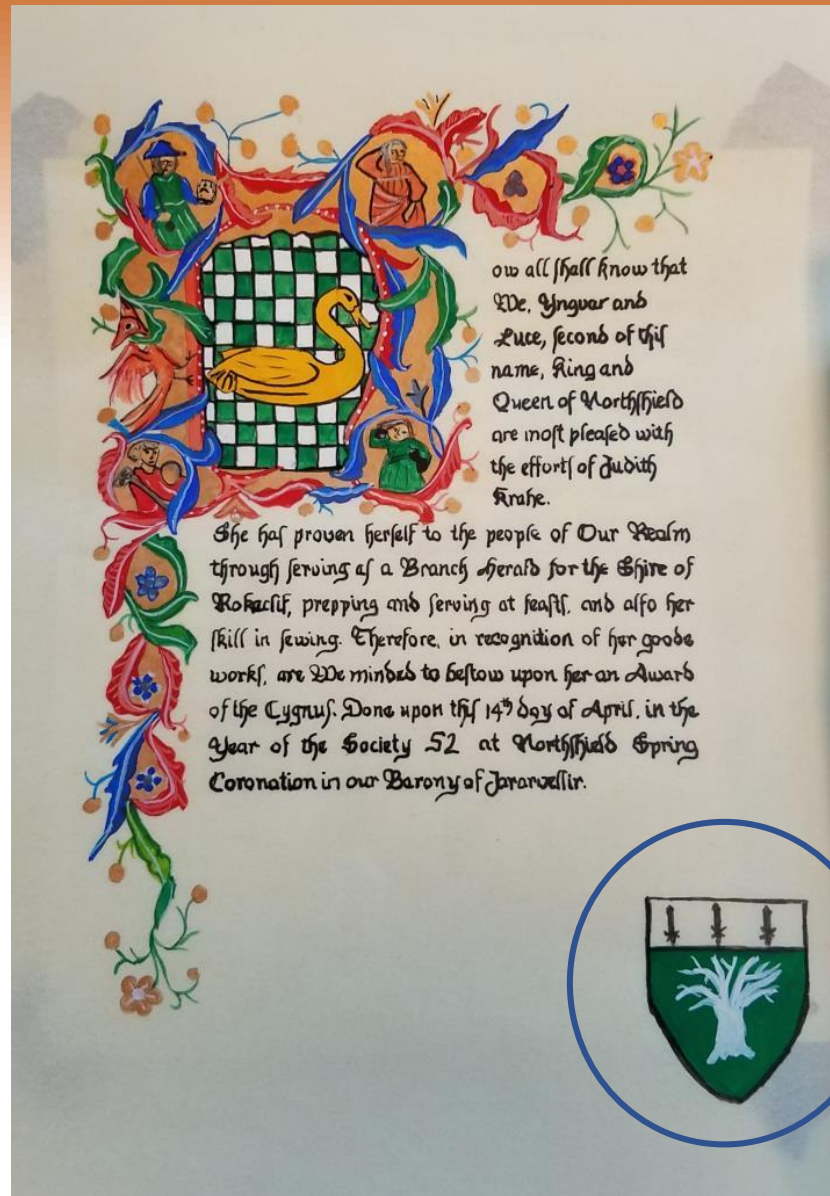 ow all ſhall know that
We, Ynguar and
Luce, ſecond of thiſ
name, King and
Queen of Northſhield
are moſt pleaſed with
the effortſ of Judith
Krahe.
She haſ proven herſelf to the people of Our Realm
through ſerving aſ a Branch Herald for the Shire of
Rokeclif, prepping and ſerving at feaſtſ, and alſo her
ſkill in ſewing. Therefore, in recognition of her goode
workſ, are We minded to beſtow upon her an Award
of the Cygnuſ. Done upon thiſ 14th day of April, in the
Year of the Society 52 at Northſhield Spring
Coronation in our Barony of Jararvellir.